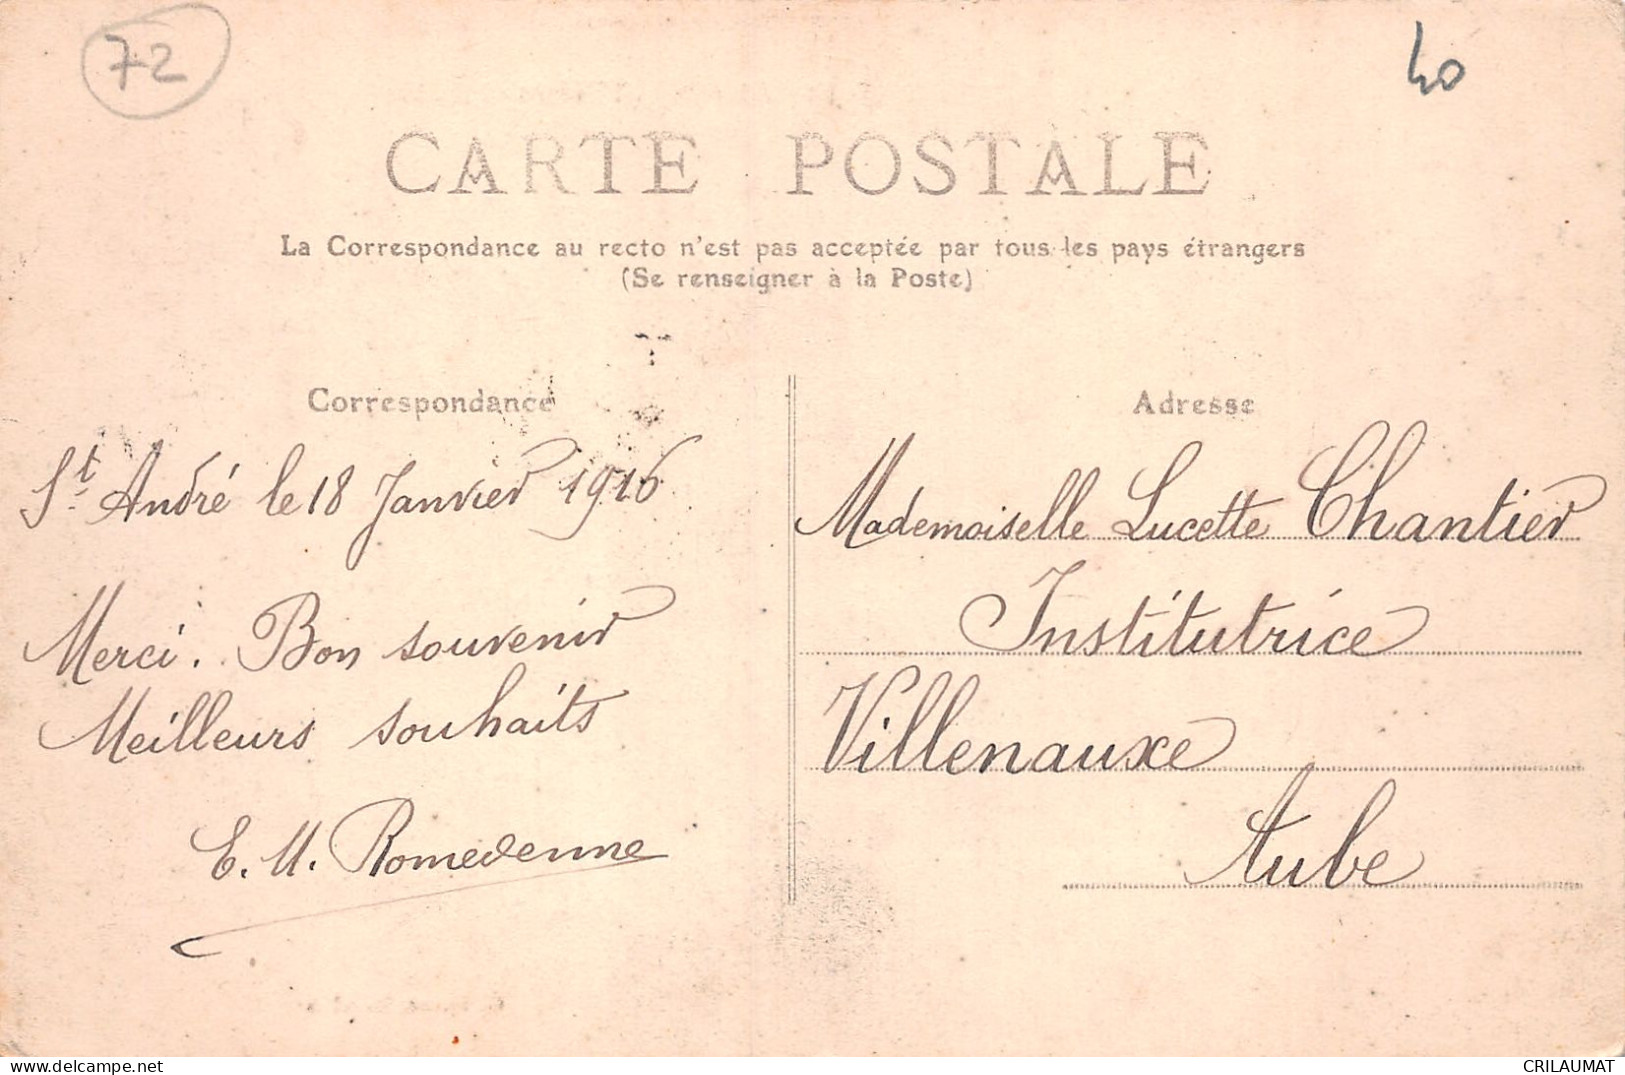 72
40
CARTE POSTALE
La Correspondance au recto n'est pas acceptée par tous les pays étrangers
(Se renseigner à la Poste)
Correspondance
St. André le 18 Janvier 1916
Merci. Bon souvenir
Meilleurs souhaits
E. M. Romedenne
Adresse
Mademoiselle Lucette Chantier
Institutrice
Villenauxe
Aube
CRILAUMAT